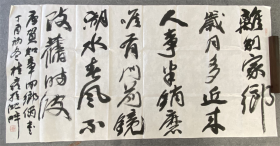 離别家鄉
歲月多近來
人事半銷磨
唯有門前鏡
湖水春風不
改舊時波
賀知章回鄉偶書
丁酉初冬